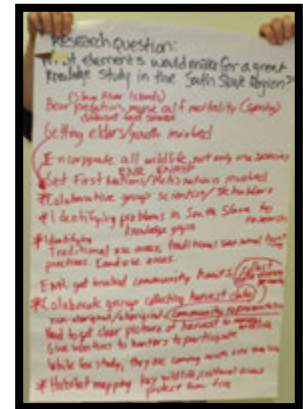 Research question:
What elements would make for a great
knowledge study in the South Slave Region?
(Slave River Islands)
Bear predation, moose calf mortality (species)
different food sources
Getting elders/youth involved
Encorporate all wildlife, not only one species
ENR
Get First Nations/Metis nation involved
*Collaborative group scientist/
*Identifying problems in South Slave to
research
knowledge gaps
*Identifying
Traditional use areas, traditional seasonal
practices. Land use areas.
ENR get trusted community
*Colaborate group collecting harvest data
non-aboriginal/aboriginal (community representation
Need to get clear picture of harvest
Give incentives to hunters to participate
while for study, they are coming
*Habitat mapping key wildlife/cultural areas
protect from fire